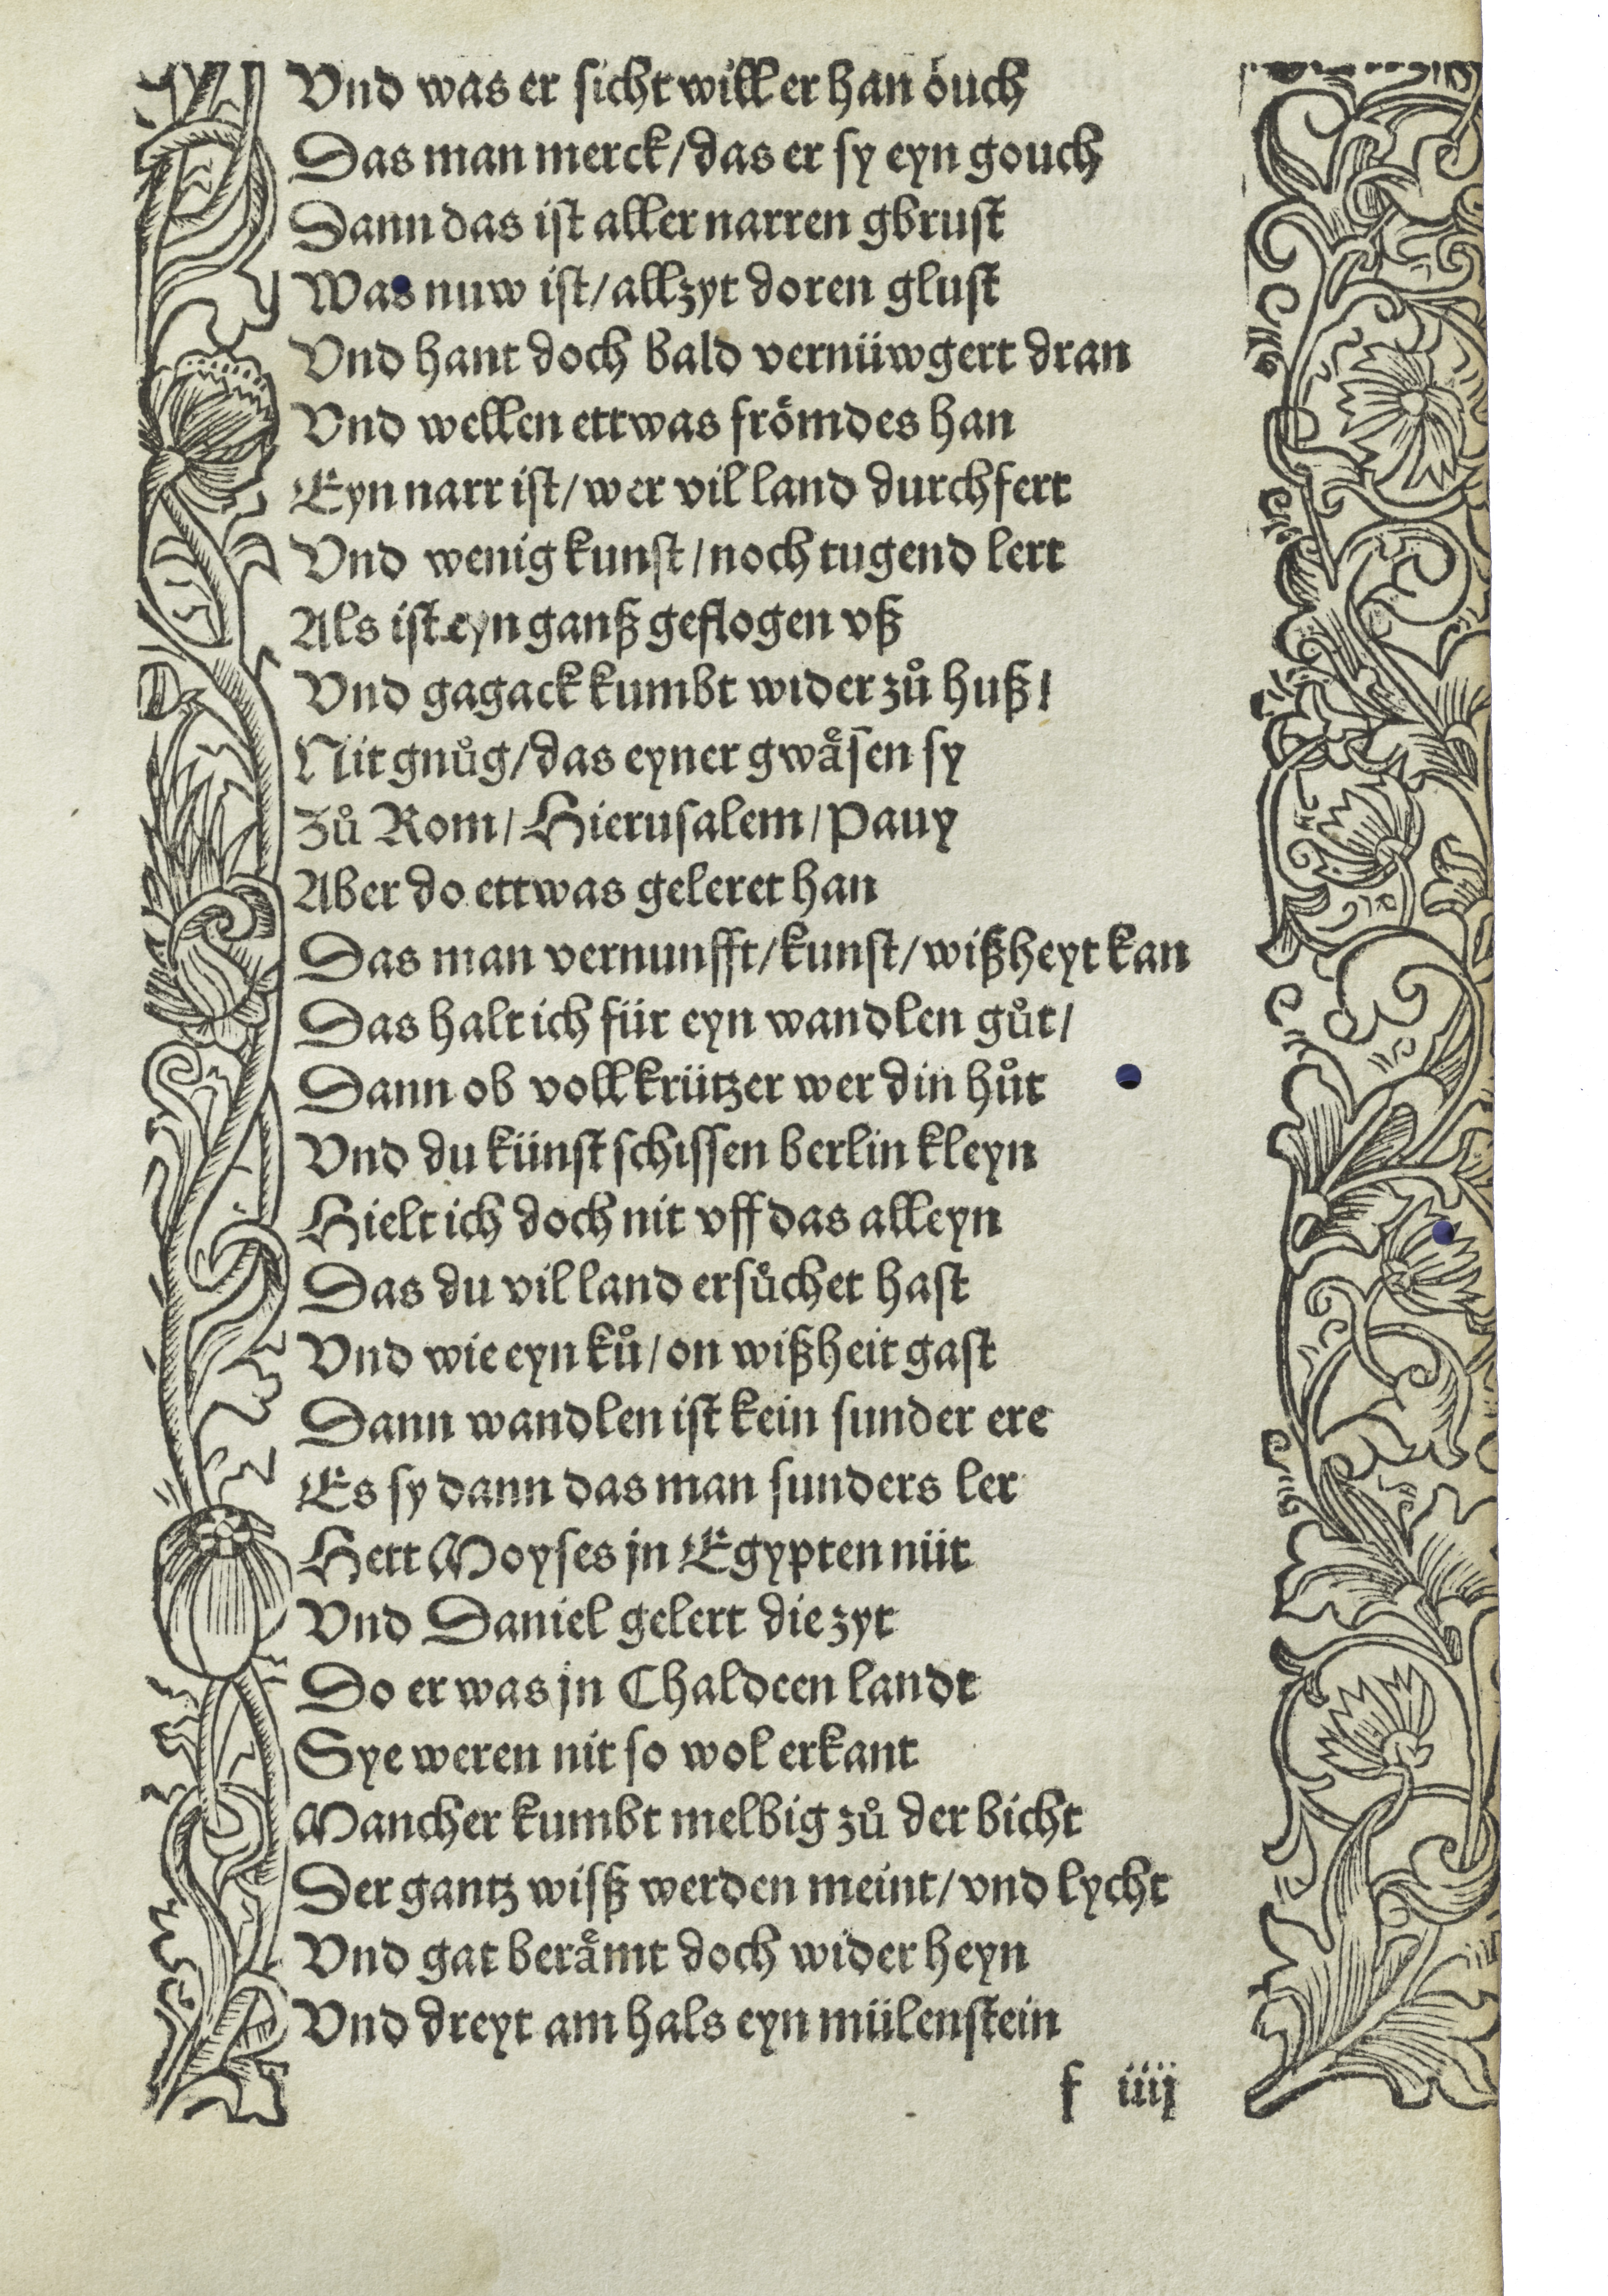 Vnd was er sicht will er han öuch
Das man merck/das er sy eyn gouch
Dann das ist aller narren gbrust
Was nuw ist/allzyt doren glust
Vnd hant doch bald vernüwgert dran
Vnd wellen ettwas frömdes han
Eyn narr ist/wer vil land durchfert
Vnd wenig kunst/noch tugend lert
Als ist eyn ganß geflogen vß
Vnd gagack kumbt wider zů huß/
Nit gnůg/das eyner gwäsen sy
Zů Rom/Hierusalem/Pauy
Aber do ettwas geleret han
Das man vernunfft/kunst/wißheyt kan
Das halt ich für eyn wandlen gůt/
Dann ob voll krützer wer din hůt
Vnd du künst schissen berlin kleyn
Hielt ich doch nit vff das alleyn
Das du vil land ersůchet hast
Vnd wie eyn ků/on wißheit gast
Dann wandlen ist kein sunder ere
Es sy dann das man sunders ler
Hett Moyses jn Egypten nüt
Vnd Daniel gelert die zyt
Do er was jn Chaldeen landt
Sye weren nit so wol erkant
Mancher kumbt melbig zů der bicht
Der gantz wisß werden meint/vnd lycht
Vnd gat berämt doch wider heyn
Vnd dreyt am hals eyn mülenstein
f iiij